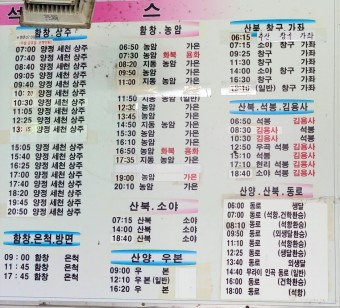 스
함창.상주
07:00 양정 세천 상주
07:40 양정 세천 상주
08:20 양정 세천 상주
09:10 양정 세천 상주
10:20 양정 세천 상주
11:05 양정 세천 상주
12:25 양정 세천 상주
양정 세천 상주
15:05 양정 세천 상주
15:40 양정 세천 상주
16:20 양정 세천 상주
17:20 양정 세천 상주
18:40 양정 세천 상주
19:20 양정 세천 상주
20:50 양정 세천 상주
함창,은척,방면
09 : 00 함창 은척
11 : 00 함창 은척
17 : 45 함창 은척
함창.농암
06:50 농암 가은
07:30 농암 화북 용화
08:20 지동 농암 가은
09:50 농암 가은
11:00
11:50 농암 가은
12:50 농암 가은
13:50 농암 가은
15:50 농암 가은
16:50 농암 화북 용화
17:35 농암 가은
19:00 가은
20:10 농암 가은
산북.소야
07:15 산북 소야
14:00 산북 소야
18:40 산북 소야
산양.우본
09:00 우 본
12:10 우 본 (일반)
16:20 우 본
산북.창구.가좌
06:15 가좌
07:15 소야 창구 가좌
08:40 창구 가좌
11:30 창구 가좌
14:00 소야 창구 가좌
16:30 창구 가좌
(일반) 가좌
산북.석봉.김용사
06:50 석봉 김용사
08:30 김용사 석봉
10:30 김용사 석봉
12:50 우곡 석봉 김용사
15:10 석봉 김용사
17:10 현리 석봉 김용사
18:40 김용사 석봉
산양.산북.동로
06:00 동로 생달
07:00 동로 (석항.건학환승)
08:10 동로 (석항환승)
09:50 동로 (외생달환승)
11:30 동로 (석항환승)
12:40 동로 (외생달환승)
13:40 동로 외생달
14:40 무라이 인곡 동로 (일반)
16:10 동로 (석항.건학환승)
18:00 동로 (석항환승)